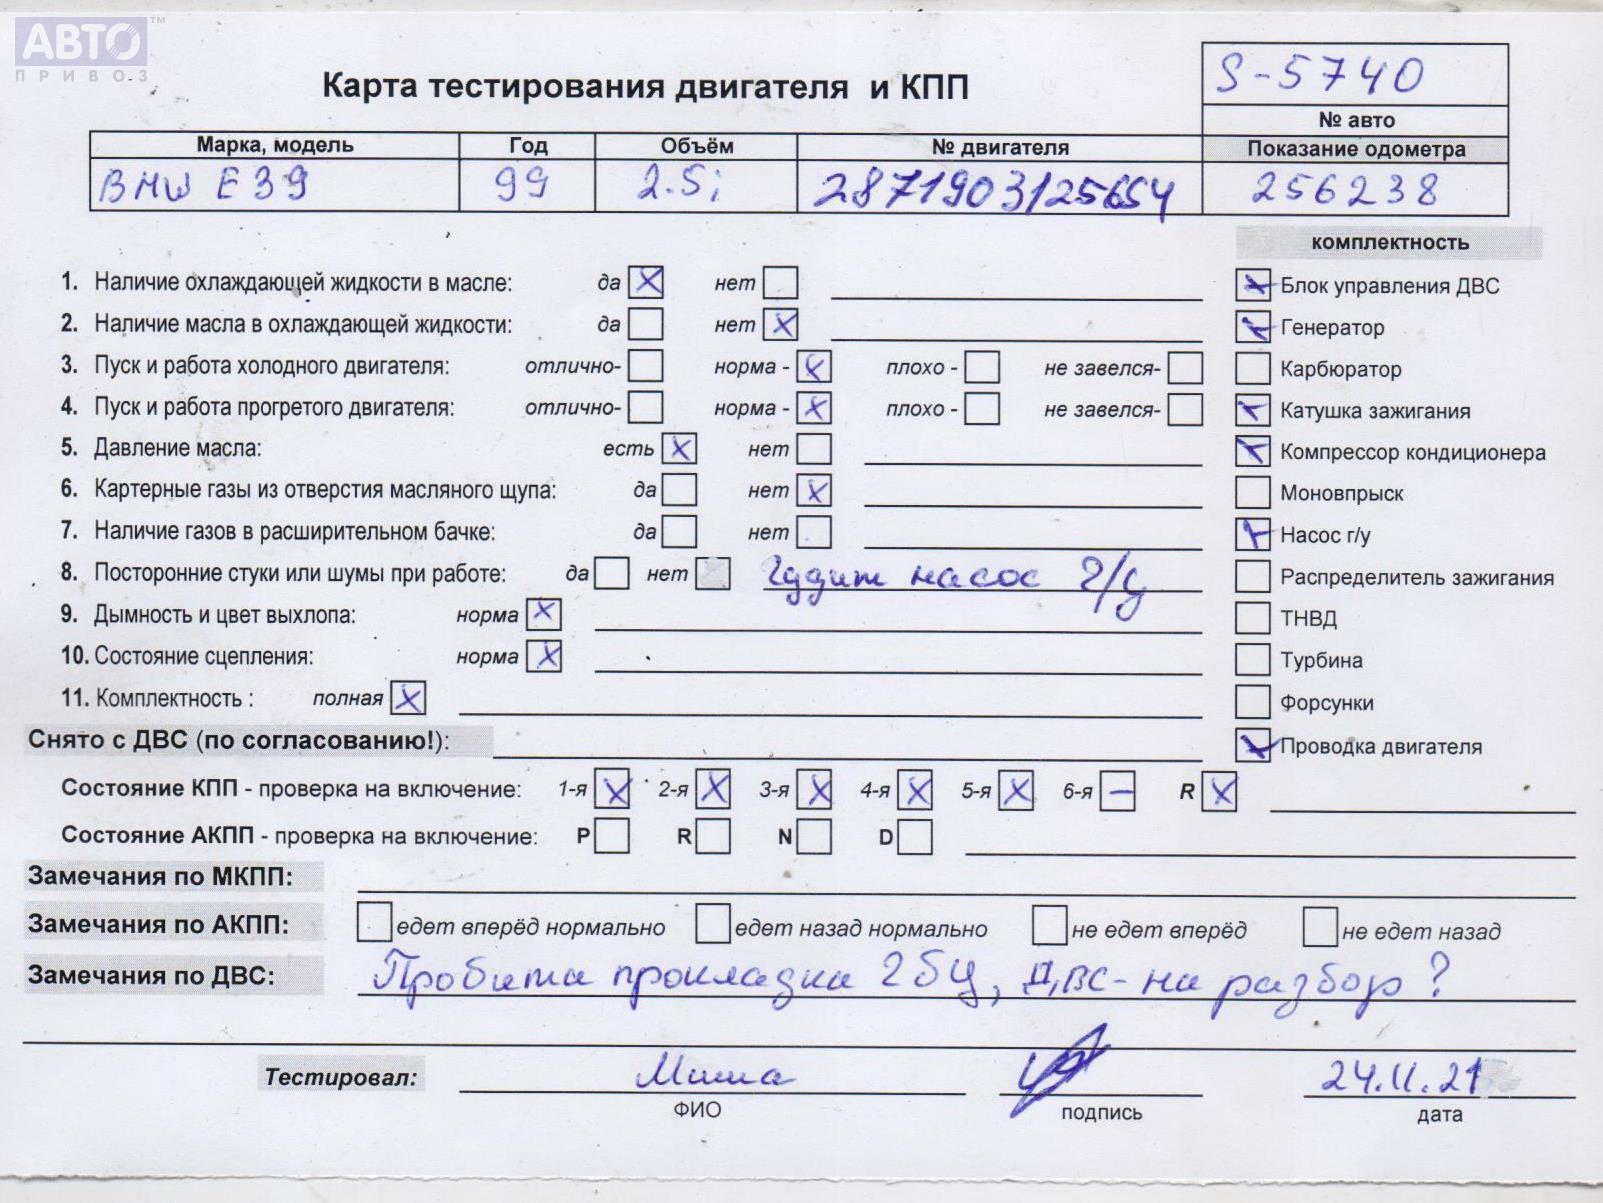 АВТО™
ПРИВОЗ
Карта тестирования двигателя и КПП
S-5740
№ авто
Марка, модель Год Объём № двигателя Показание одометра
BMW E39 99 2.5i 28719031256S4 256238
комплектность
1. Наличие охлаждающей жидкости в масле: да X нет
2. Наличие масла в охлаждающей жидкости: да нет X
3. Пуск и работа холодного двигателя: отлично- норма - X плохо - не завелся-
4. Пуск и работа прогретого двигателя: отлично- норма - X плохо - не завелся-
5. Давление масла: есть X нет
6. Картерные газы из отверстия масляного щупа: да нет X
7. Наличие газов в расширительном бачке: да нет
8. Посторонние стуки или шумы при работе: да нет Гудит насос г/у
9. Дымность и цвет выхлопа: норма X
10. Состояние сцепления: норма X
11. Комплектность : полная X
Снято с ДВС (по согласованию!):
X Блок управления ДВС
X Генератор
Карбюратор
X Катушка зажигания
X Компрессор кондиционера
Моновпрыск
X Насос г/у
Распределитель зажигания
ТНВД
Турбина
Форсунки
X Проводка двигателя
Состояние КПП - проверка на включение: 1-я X 2-я X 3-я X 4-я X 5-я X 6-я – R X
Состояние АКПП - проверка на включение: P R N D
Замечания по МКПП:
Замечания по АКПП: едет вперёд нормально едет назад нормально не едет вперёд не едет назад
Замечания по ДВС: Пробита прокладка гбц, ДВС-на разбор?
Тестировал: Миша 24.11.21
ФИО подпись дата